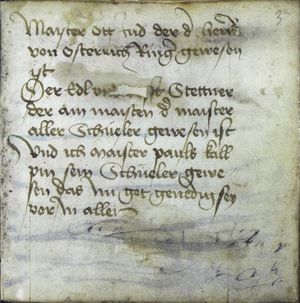 Maister Ott Jud der d' herrn
von Osterrich Ringer gewesen
ist
Der Edl Stettner
der am maisten d' maister
aller Schueler gewesen ist
Und ich maister pauls kall
pin sein Schueler gewe
sen das Im got genedig sey
vor In allen
3